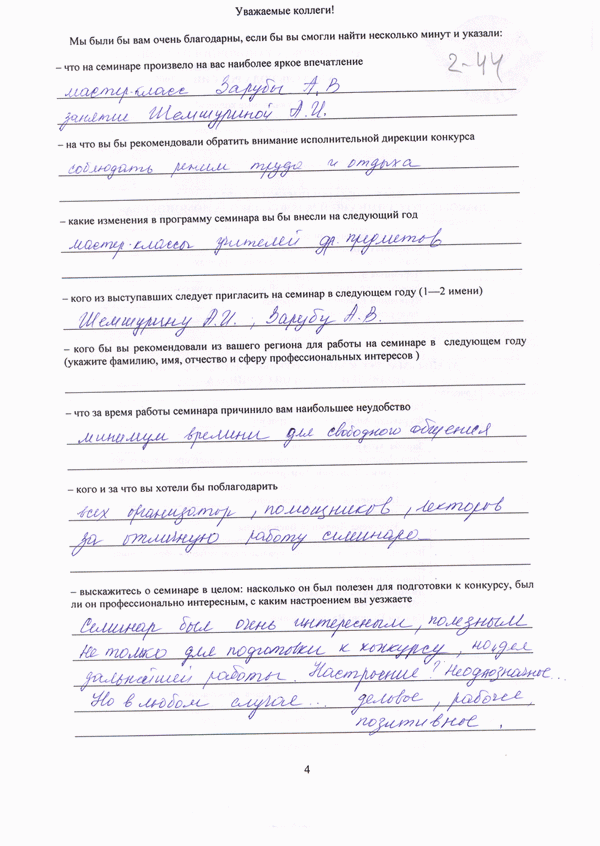 Уважаемые коллеги!
Мы были бы вам очень благодарны, если бы вы смогли найти несколько минут и указали:
– что на семинаре произвело на вас наиболее яркое впечатление
2-44
мастер-класс Зарубы А.В
занятие Шемшуриной А.И.
– на что вы бы рекомендовали обратить внимание исполнительной дирекции конкурса
соблюдать режим труда и отдыха
– какие изменения в программу семинара вы бы внесли на следующий год
мастер-классы учителей др. предметов
– кого из выступавших следует пригласить на семинар в следующем году (1—2 имени)
Шемшурину А.И., Зарубу А.В.
– кого бы вы рекомендовали из вашего региона для работы на семинаре в следующем году
(укажите фамилию, имя, отчество и сферу профессиональных интересов )
– что за время работы семинара причинило вам наибольшее неудобство
минимум времини для свободного общения
– кого и за что вы хотели бы поблагодарить
всех организатор, помощников, лекторов
за отличную работу семинара
– выскажитесь о семинаре в целом: насколько он был полезен для подготовки к конкурсу, был
ли он профессионально интересным, с каким настроением вы уезжаете
Семинар был очень интересным, полезным
не только для подготовки к конкурсу, но и для
дальнейшей работы. Настроение? Неоднозначное...
Но в любом случае... деловое, рабочее,
позитивное.
4